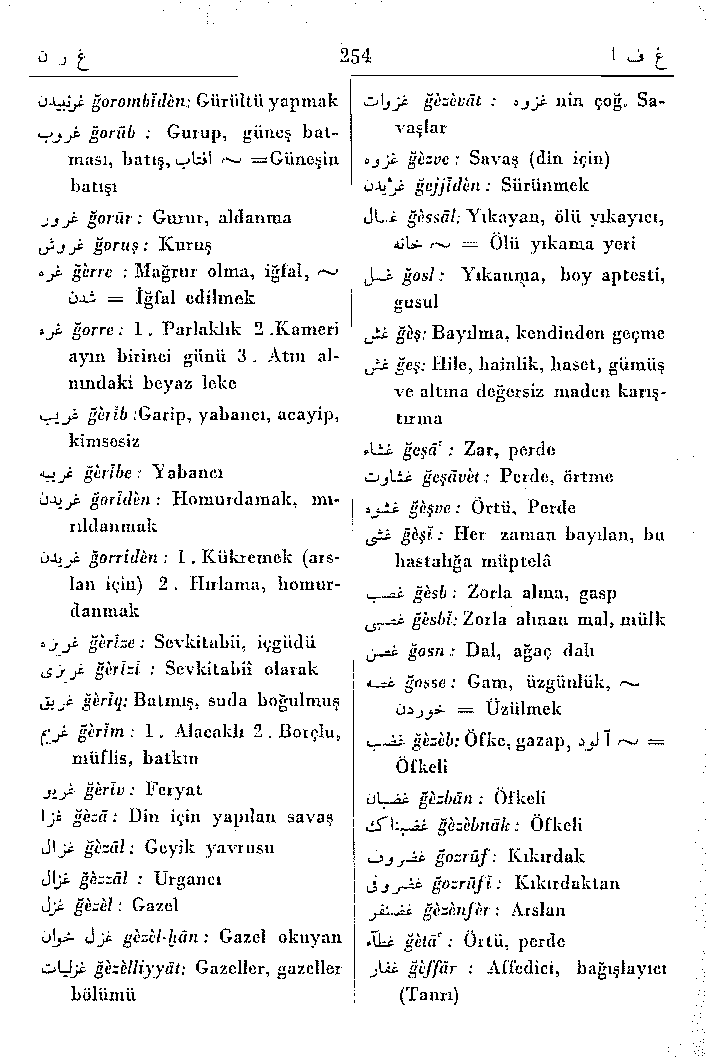 غ ر ن 254 غ ف ا
غرنبیدن ğorombîdèn: Gürültü yapmak
غروب ğorûb : Gurup, güneş bat-
ması, batış, آفتاب ~ =Güneşin
batışı
غرور ğorûr : Gurur, aldanma
غروش ğoruş : Kuruş
غره ğèrre : Mağrur olma, iğfal, ~
شدن = İğfal edilmek
غره ğorre : 1. Parlaklık 2.Kameri
ayın birinci günü 3. Atın al-
nındaki beyaz leke
غریب ğèrîb :Garip, yabancı, acayip,
kimsesiz
غریبه ğèrîbe : Yabancı
غریدن ğorîdèn : Homurdamak, mı-
rıldanmak
غریدن ğorridèn : 1. Kükremek (ars-
lan için) 2. Hırlama, homur-
danmak
غریزه ğèrîze : Sevkitabii, içgüdü
غریزی ğèrîzî : Sevkitabiî olarak
غریق ğèrîq: Batmış, suda boğulmuş
غریم ğèrîm : 1. Alacaklı 2. Borçlu,
müflis, batkın
غریو ğèrîv : Feryat
غزا ğèzâ : Din için yapılan savaş
غزال ğèzâl : Geyik yavrusu
غزال ğèzzâl : Urgancı
غزل ğèzèl : Gazel
غزل خوان ğèzèl-ḫân : Gazel okuyan
غزلیات ğèzèlliyyât: Gazeller, gazeller
bölümü
غزوات ğèzèvât : غزوه nin çoğ. Sa-
vaşlar
غزوه ğèzve : Savaş (din için)
غژیدن ğejjîdèn : Sürünmek
غسال ğèssâl: Yıkayan, ölü yıkayıcı,
خانه ~ = Ölü yıkama yeri
غسل ğosl : Yıkanma, boy aptesti,
gusul
غش ğèş: Bayılma, kendinden geçme
غش ğeş: Hile, hainlik, haset, gümüş
ve altına değersiz maden karış-
tırma
غشاء ğeşâ' : Zar, perde
غشاوت ğeşâvèt : Perde, örtme
غشوه ğèşve : Örtü, Perde
غشی ğèşî : Her zaman bayılan, bu
hastalığa müptelâ
غصب ğèsb : Zorla alma, gasp
غصبی ğèsbî: Zorla alınan mal, mülk
غصن ğosn : Dal, ağaç dalı
غصه ğosse : Gam, üzgünlük, ~
خوردن = Üzülmek
غضب ğèzèb: Öfke, gazap, آلود ~ =
Öfkeli
غضبان ğèzbân : Öfkeli
غضبناک ğèzèbnâk : Öfkeli
غضروف ğozrûf : Kıkırdak
غضروفی ğozrûfî : Kıkırdaktan
غضنفر ğèzènfèr : Arslan
غطاء ğètâ' : Örtü, perde
غفار ğèffâr : Affedici, bağışlayıcı
(Tanrı)